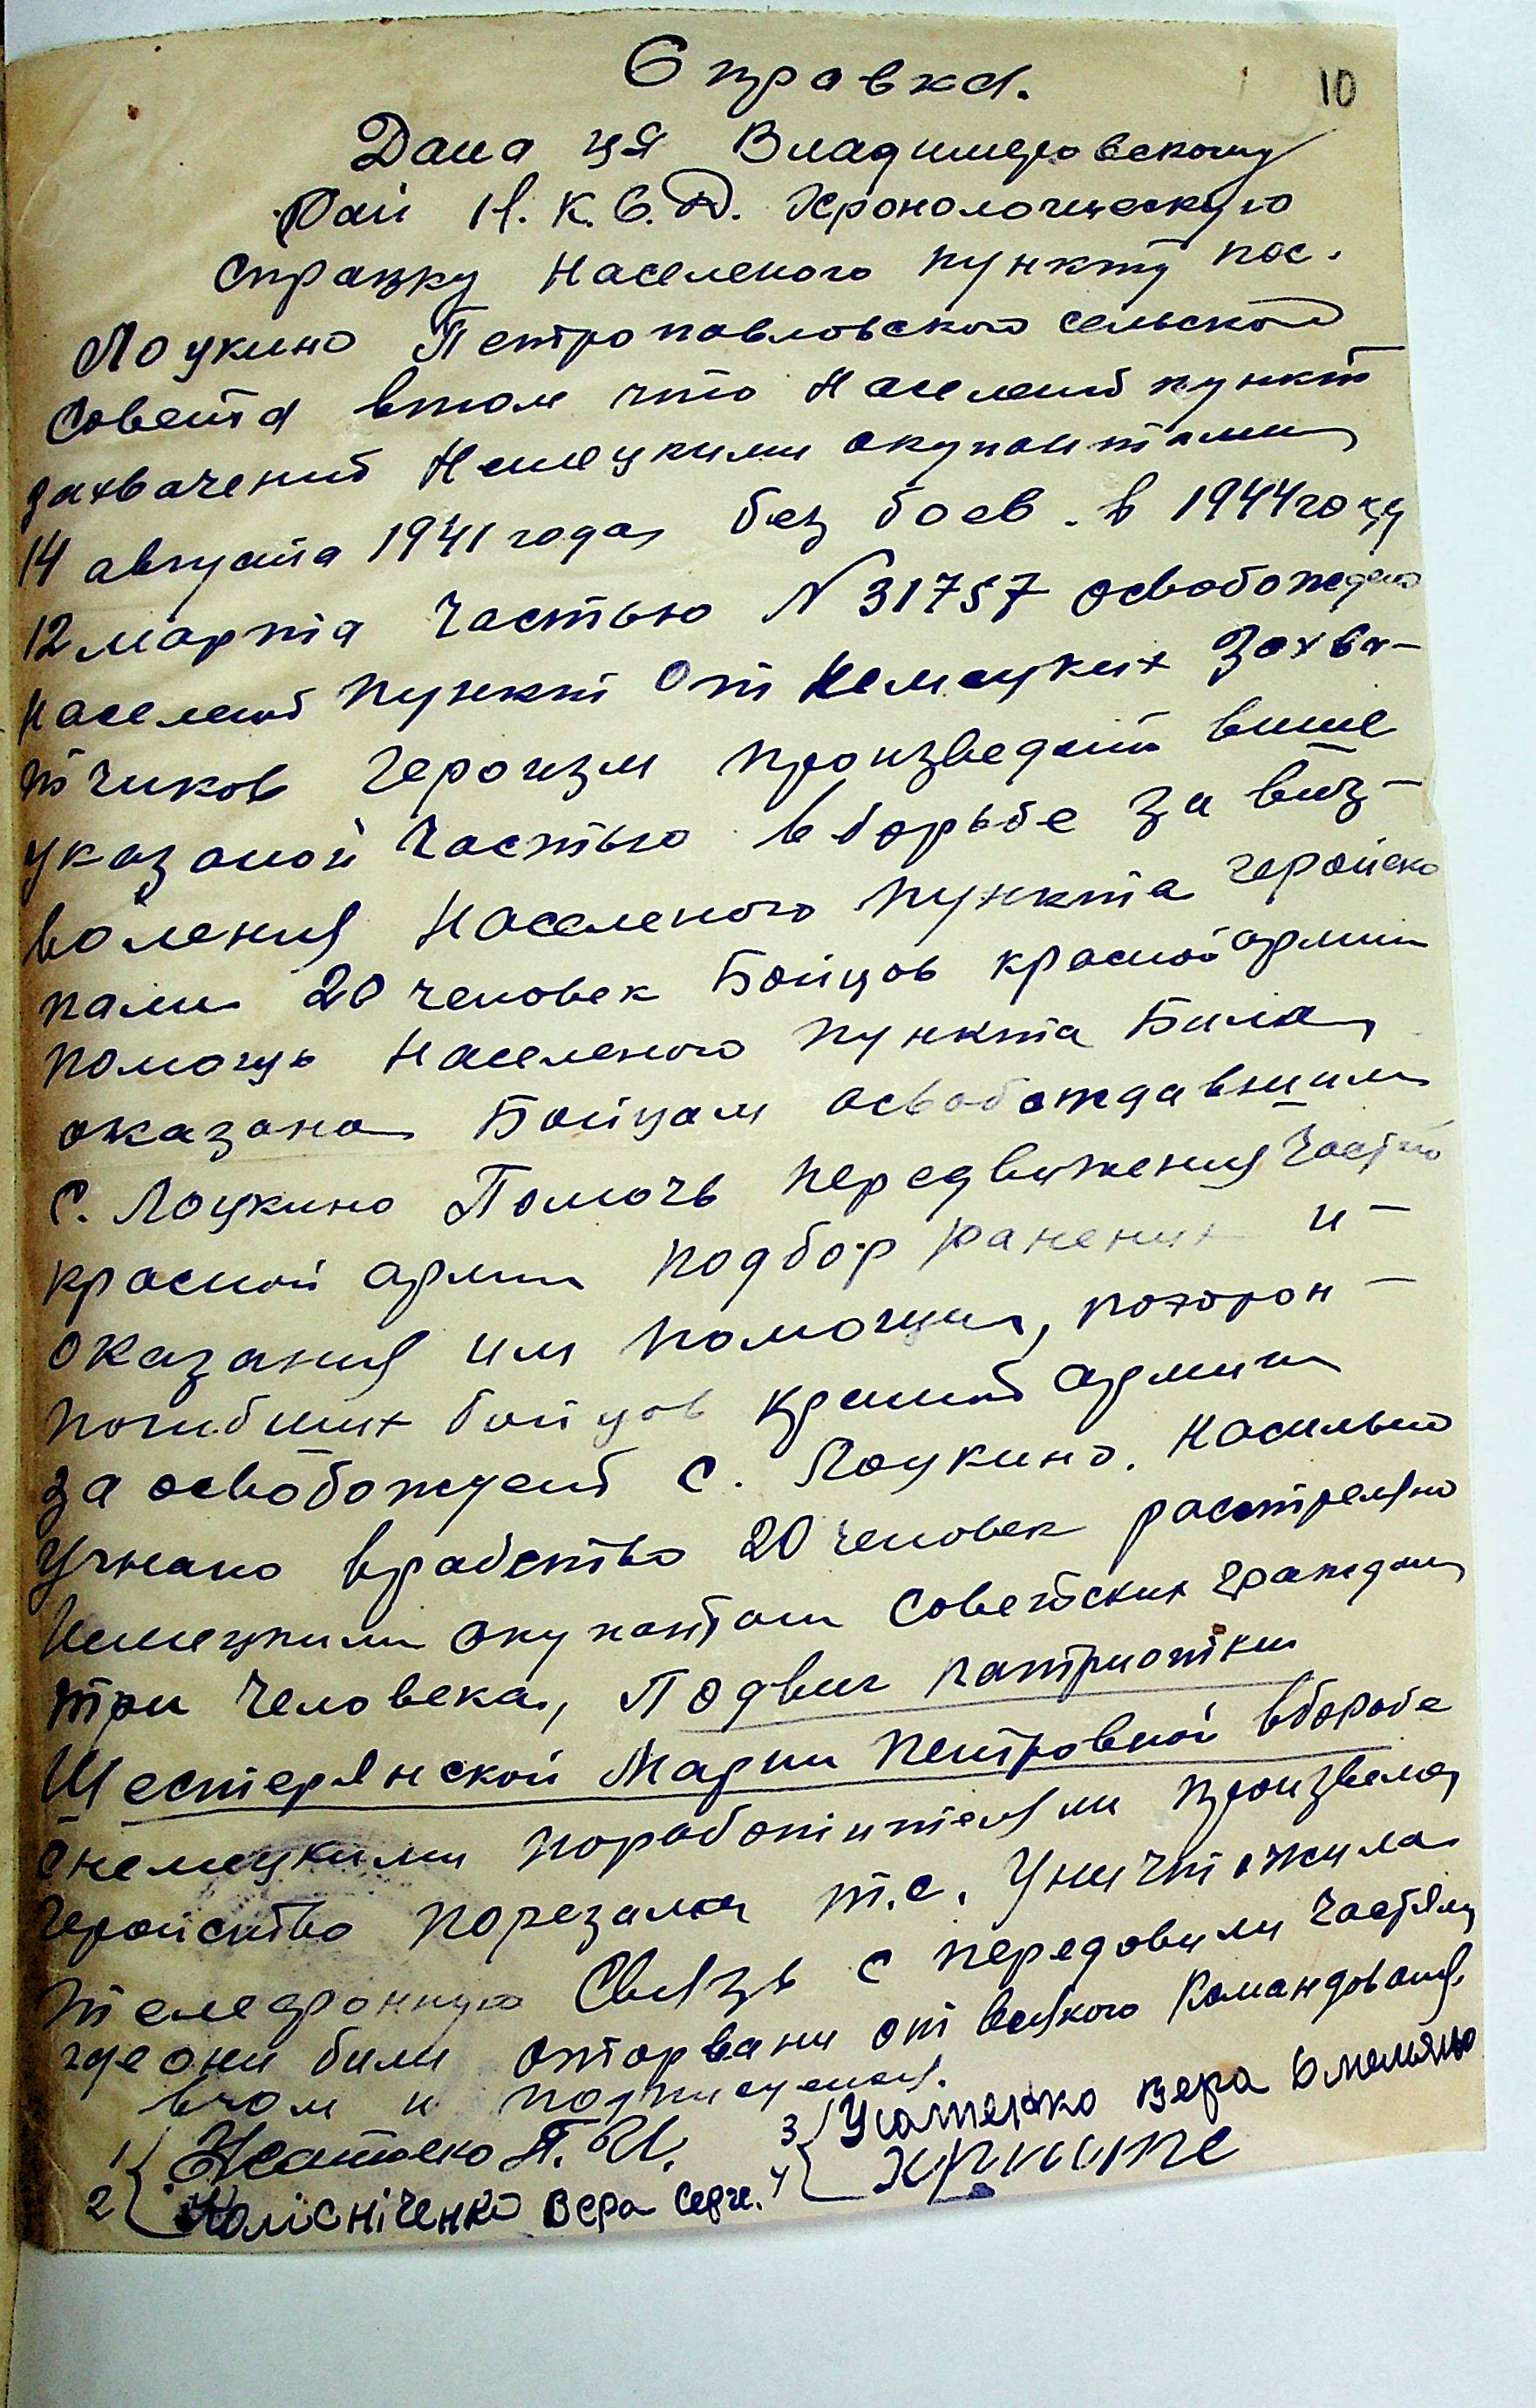 Справка.
10
Дана ця Владимеровскому
Рай Н.К.В.Д. Хронологическую
справку Населеного пункту пос.
Лоцкино Петропавловского сельского
Совета втом что Населений пункт
захвачений Немецкими окупантами
14 августа 1941 года, без боев. в 1944 году
12 марта Частью N 31757 освобождено
населений пункт от немецких захва-
тчиков Героизм произведений више
указаной Частью в борьбе за виз-
воления Населеного пункта геройско
пали 20 человек Бойцов красной армии
помощь Населеного пункта Била
оказана Бойцам освобождавшим
С. Лоцкино Помочь передвижения частю
красной армии подбор ранених и-
оказания им помощи, похорон-
погибших бойцов красной армии
за освобождений с. Лоцкино. Насильно
угнано врабство 20 человек расстреляно
Немецкими окупантами Советских граждан
три человека, Подвиг патриотки
Шестерянской Марии Петровной вборьбе
снемецкими поработителями произвела
геройство порезала т.е. уничтожила
телефонную Связь с передовими частями
где они били оторвани от всякого Командования.
вчом и подписуемся.
1) П. И.
2) Колісніченко Вера Серг.
3) Вера Омеляно
4)